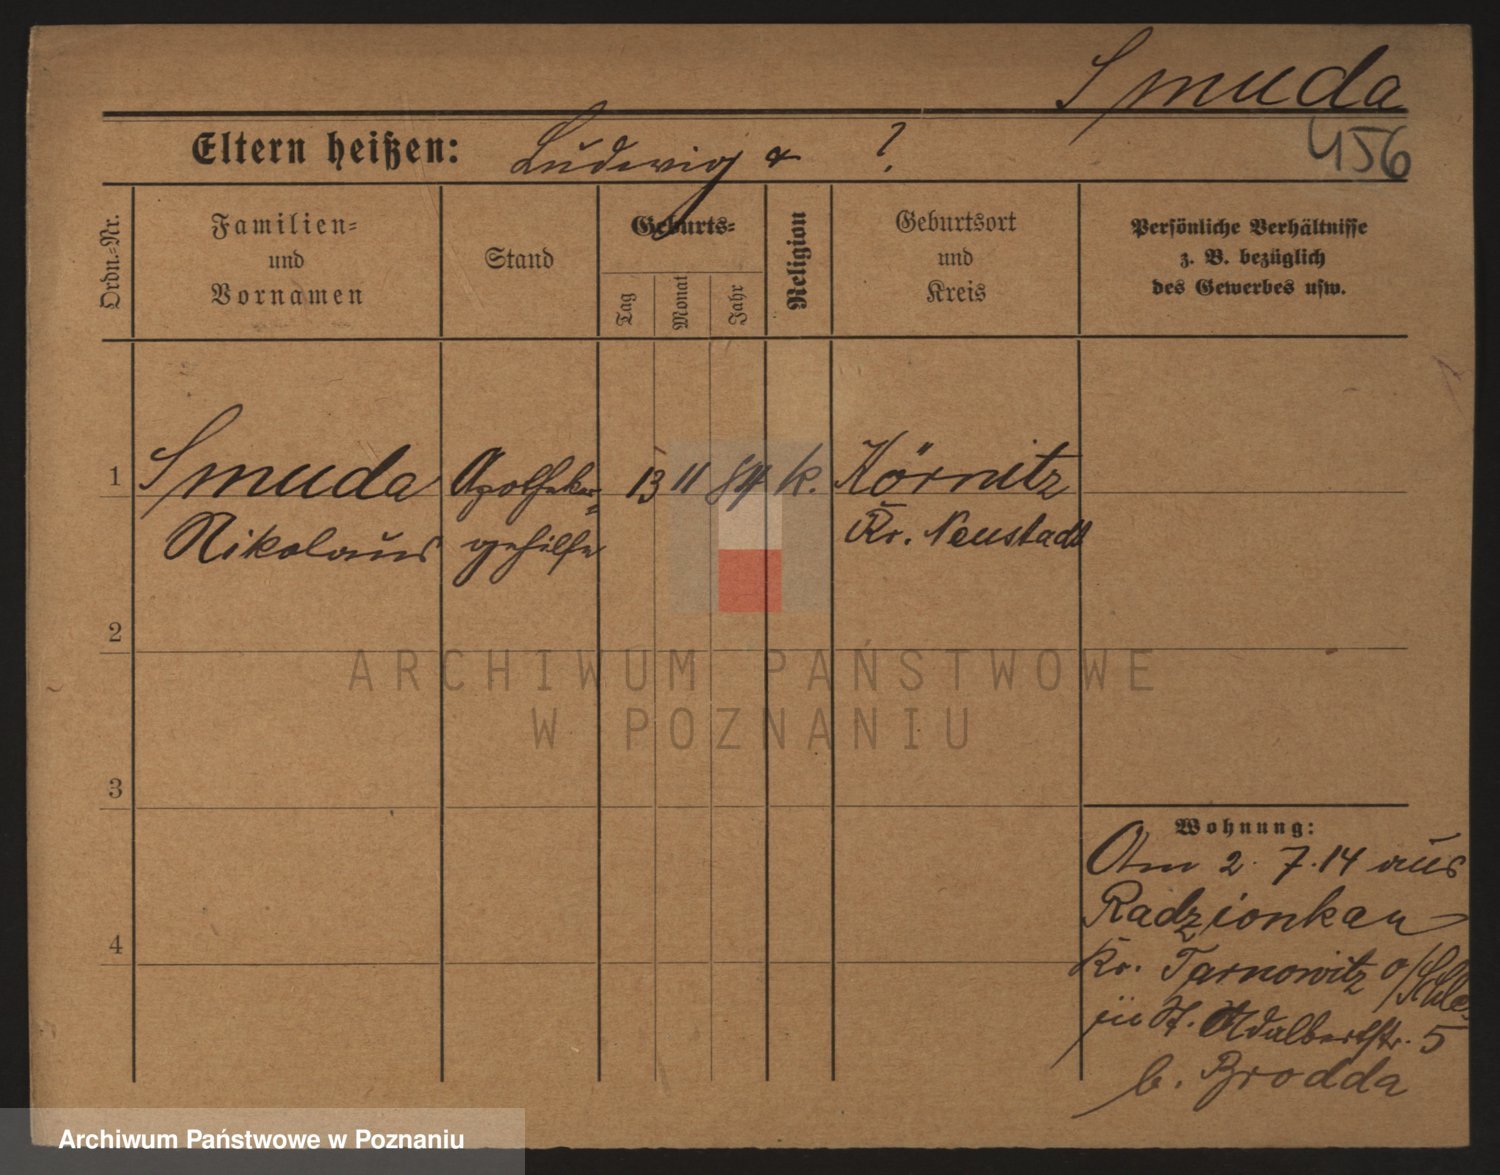 Smuda
456
Eltern heißen: Ludwig & ?
Ordn.-Nr.
Familien-
und
Vornamen
Stand
Geburts-
Tag
Monat
Jahr
Religion
Geburtsort
und
Kreis
Persönliche Verhältnisse
z. B. bezüglich
des Gewerbes usw.
1
Smuda Apotheker= 13 11 84 k. Körnitz
Nikolaus gehilfe Kr. Neustadt
2
ARCHIWUM PAŃSTWOWE
W POZNANIU
3
Wohnung:
Am 2. 7. 14 aus
Radzionkau
Kr. Tarnowitz o/Schles
St. Adalbertstr. 5
b. Brodda
4
Archiwum Państwowe w Poznaniu